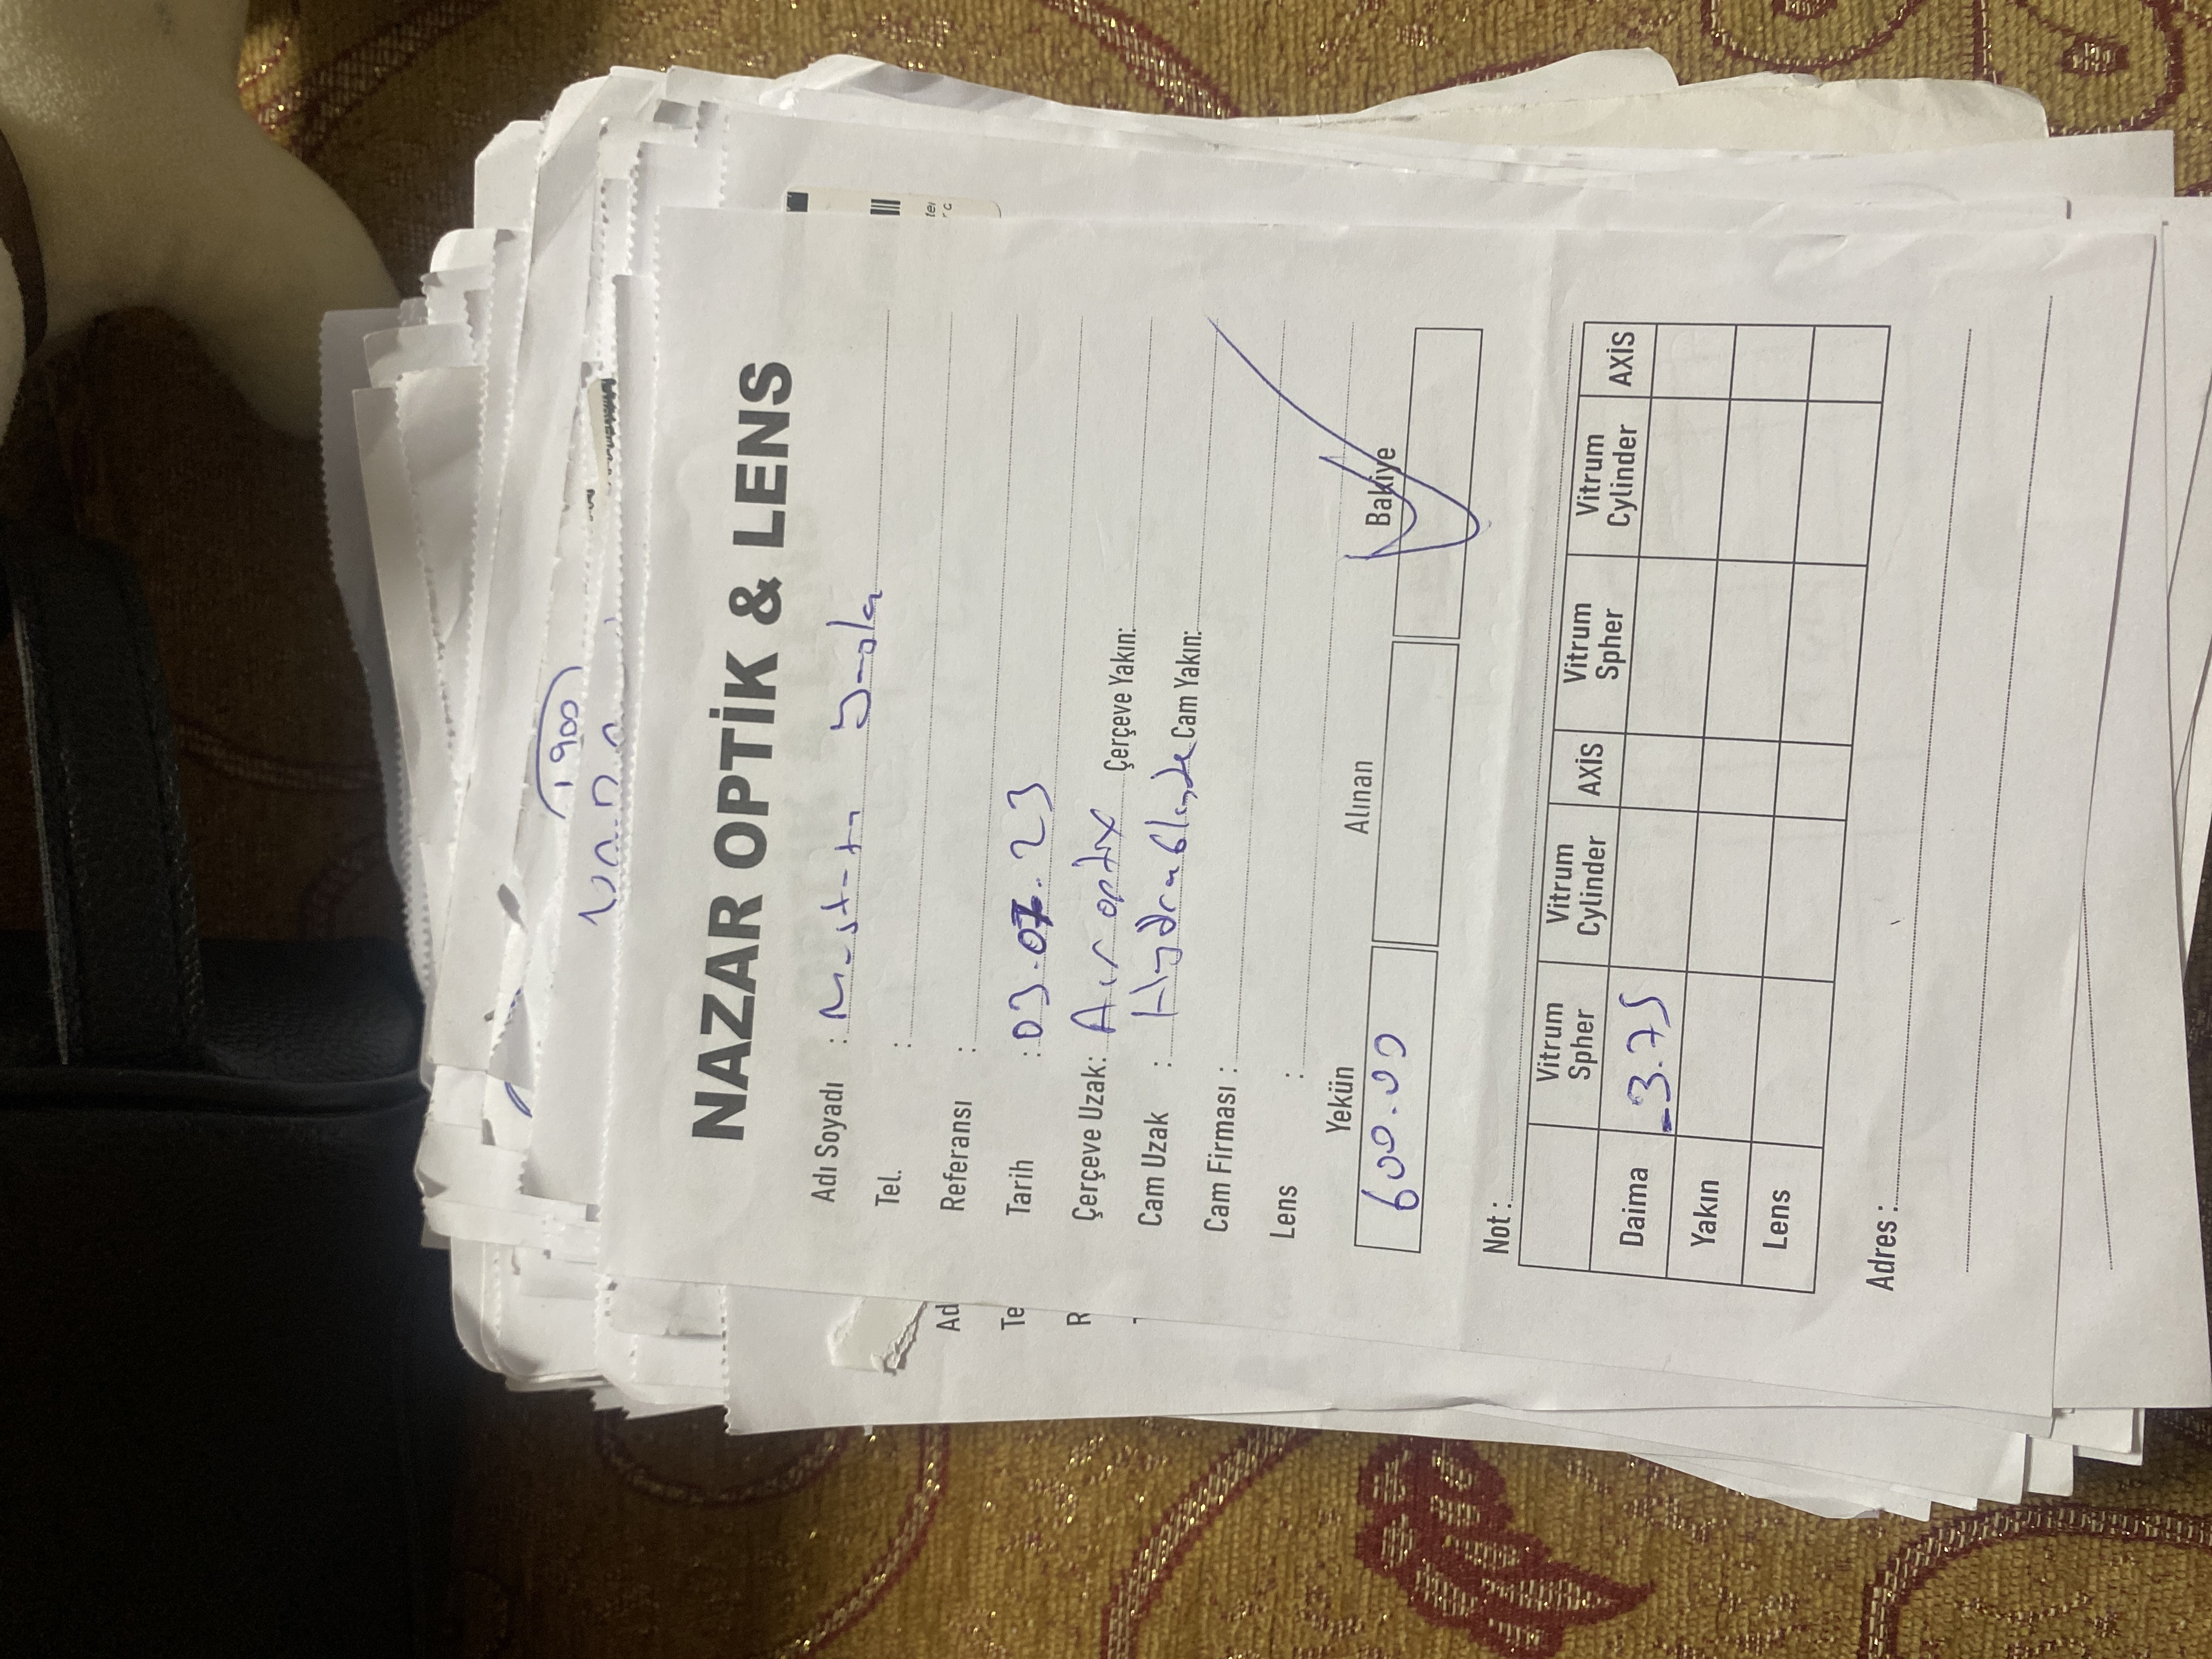 1900
NAZAR OPTİK & LENS
Adı Soyadı : Mustafa
Tel. :
Referansı :
Tarih : 03.07.23
Çerçeve Uzak: Air optix Çerçeve Yakın:
Cam Uzak : Hydraglyde Cam Yakın:
Cam Firması :
Lens :
Yekün Alınan Bakiye
600.00
Not :
Vitrum Spher Vitrum Cylinder AXİS Vitrum Spher Vitrum Cylinder AXİS
Daima -3.75
Yakın
Lens
Adres :
Ad
Te
R